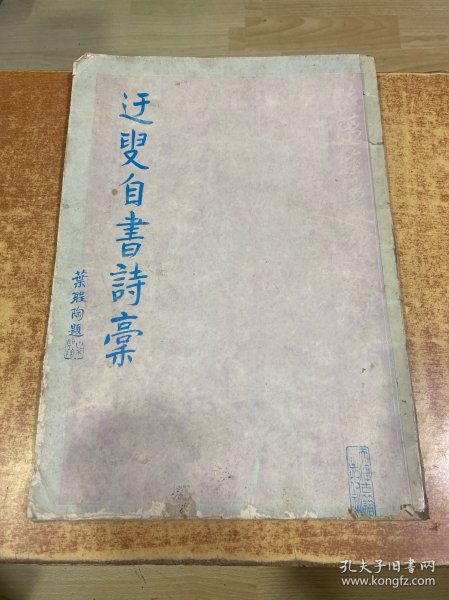 迂叟自書詩稾
葉聖陶題
孔夫子旧书网
www.kongfz.com